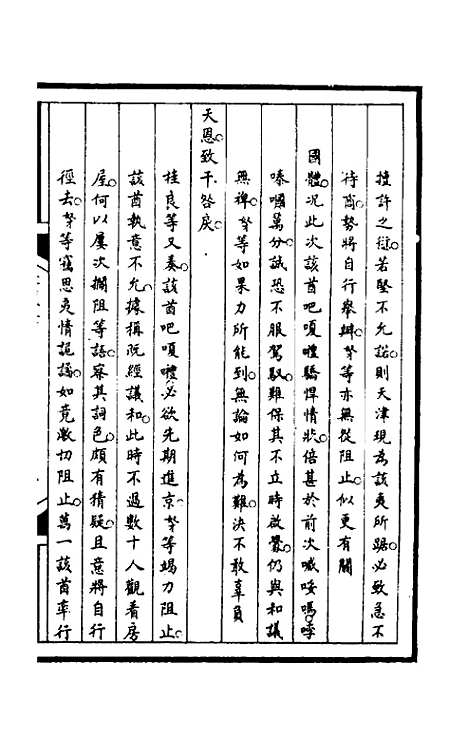 擅許之愆若堅不允諾則天津現為該夷所踞必致急不
待商勢將自行舉辦等亦無從阻止似更有關
國體況此次該酋吧嗄禮驕悍情狀倍甚於前次喊哎嗎呼
嗪囑萬分誠恐不服駕馭難保其不立時啟釁仍與和議
無裨等如果力所能到無論如何為難決不敢辜負
天恩致干咎戾
桂良等又奏該酋吧嗄禮必欲先期進京等竭力阻止
該酋執意不允據稱阮經議和此時不過數十人觀看房
屋何以屢次攔阻等語察其詞色頗有猜疑且意將自行
徑去等竊思夷情詭譎如竟激切阻止萬一該酋率行